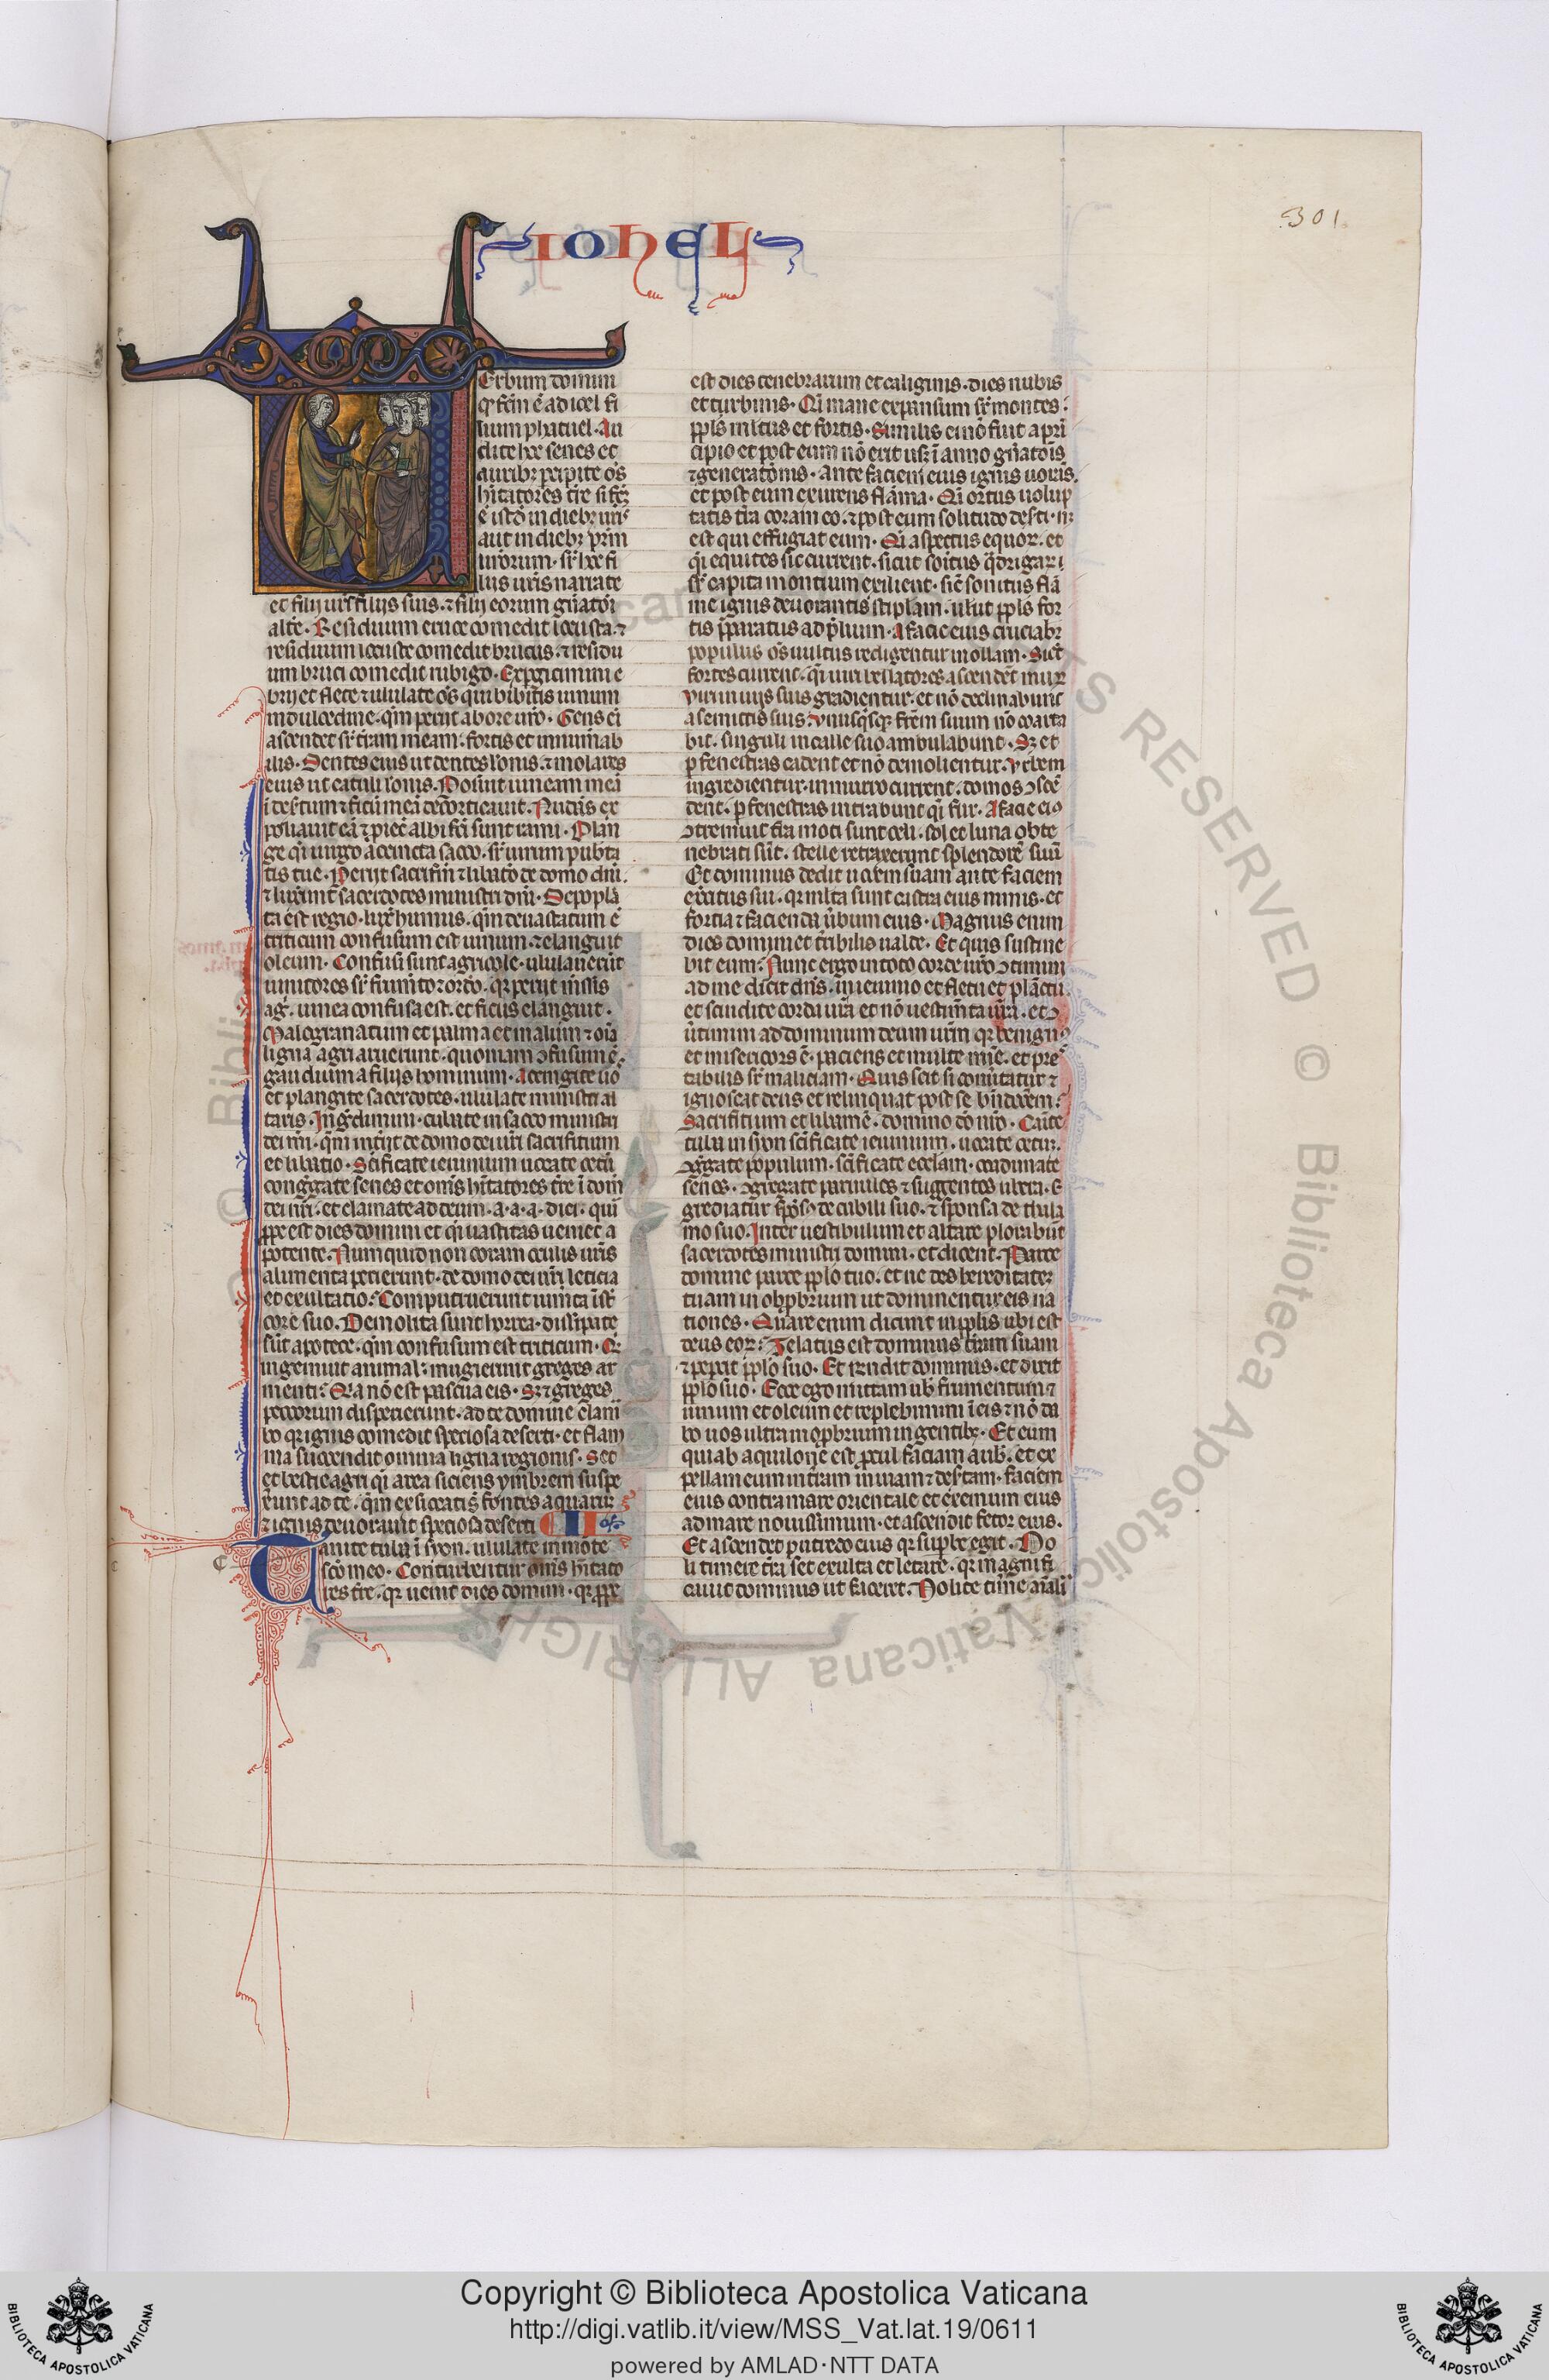 301
IOHEL
Erbum domini
qḋ fc̄m ē ad ioel fi
lium phatuel. Au
dite hec senes et
auribꝫ pcipite oṁs
hītatores tr̄e si fc̄ꝫ
ē istd̄ in diebꝫ uris
aut in diebꝫ prm̄
urōrum. sr̄ hec fi
liis uris narrate
et filij uri filijs suis. ⁊ filij eorum gn̄atōi
alt̄e. Residuum eruce comedit locusta. ⁊
residuum locuste comedit brucus. ⁊ residu
um bruci comedit rubigo. Expgiscimini e
brij et flete ⁊ ululate oṁs qui bibitis uinum
in dulcedine. qm̄ perijt ab ore uro. Gens ei
ascendit sr̄ tr̄am meam. fortis et innumab
ilis. Dentes eius ut dentes leonis. ⁊ molares
eius ut catuli leonis. Posuit uineam meā
ī desertum ⁊ ficū meā decorticauit. Nudās ex
poliauit eā ⁊ piec̄ albi fc̄i sunt rami. Plan
ge qi uirgo accincta sacco. sr̄ uirum pubta
tis tue. Perijt sacrifm̄ ⁊ libatō de domo dn̄i.
⁊ luxerunt sacerdotes ministri dn̄i. Depopla
ta est regio. lux̄ humus. qm̄ deuastatum ē
triticum confusum est uinum. ⁊ elanguit
oleum. Confusi sunt agricole. ululauerūt
uinitores sr̄ frumto ⁊ ordō. qꝛ perijt messis
agri. uinea confusa est. et ficus elanguit.
Malogranatum et palma et malum ⁊ oīa
ligna agri aruerunt. quoniam ɔfusum ē
gaudium a filijs hominum. Accingite uos
et plangite sacerdotes. ululate ministri al
taris. Ingredimini. cubate in sacco ministri
dei mei. qm̄ interijt de domo dei uri sacrifitium
et libatio. Scificate ieiunium uocate cetū
congregate senes et om̄s hītatores tr̄e ī domū
dei uri. et clamate ad deum. a. a. a. diei. quia
ppe est dies domini et qi uastitas ueniet a
potente. Numquid non coram oculis uris
alimenta perierunt. de domo dei nri leticia
et exultatio. Computruerunt iumta ī str̄
core suo. Demolita sunt horrea. dissipate
sūt apotece. qm̄ confusum est triticum. Qꝛ
ingemuit animal. mugierunt greges ar
menti. Qꝛ a nō est pascua eis. Sꝫ ⁊ greges
peccorum disperierunt. ad te domine clama
bo qꝛ ignis comedit speciosa deserti. et flam
ma succendit omnia ligna regionis. Set
et bestie agri qi area siciens ymbrem suspe
xerunt ad te. qm̄ exsiccati sunt fontes aquarum
⁊ ignis deuorauit speciosa deserti II
Canite tuba ī syon. ululate in monte
scō meo. Conturbentur om̄s hītato
res tr̄e. qꝛ uenit dies domini. qꝛ ppe
est dies tenebrarum et caliginis. dies nubis
et turbinis. Qi mane expansum sr̄ montes.
ppls multus et fortis. Similis ei nō fuit a prī
cipio et post eum nō erit usꝫ ī anno gn̄atōis
⁊ generatōnis. Ante faciem eius ignis uorās.
et post eum exurens flāma. Qi ortus uolup
tatis tr̄a coram eo. ⁊ post eum solitudo deserti. nec
est qui effugiat eum. Qi aspectus equoꝝ. et
qi equites sic current. sicut sonitus qdrigarū
sr̄ capita montium exilient. sic sonitus flā
me ignis deuorantis stiplam. uelut ppls for
tis ipparatus ad plium. A facie eius cruciabꝫ
populus om̄s uultus redigentur in ollam. Sicut
fortes current. qi uiri bellatores ascendent muꝝ
Viri in uijs suis gradientur. et nō declinabunt
a semitis suis. vnusqisqꝫ frem suum nō coarta
bit. singuli in calle suo ambulabunt. Sꝫ et
p fenestras cadent et nō demolientur. Vrbem
ingredientur. in muro current. domos ɔscen
dent. p fenestras intrabunt qi fur. A facie eius
ɔtremuit tr̄a moti sunt celi. sol et luna obte
nebrati sūt. stelle retraxerunt splendorē suū
Et dominus dedit uocem suam ante faciem
exercitus sui. qꝛ multa sunt castra eius nimis. et
fortia ⁊ facientia uerbum eius. Magnus enim
dies domini et tribilis ualde. Et quis sustine
bit eum. Nunc ergo in toto corde uro ɔtimini
ad me dicit dns. in ieiunio et fletu et planctu.
et scindite corda ura et nō uestimta ura. et ɔ
uertimini ad dominum deum urm qꝛ benignus
et misericors ē. paciens et multe mie. et pre
stabilis sr̄ maliciam. Quis scit si conutatur ⁊
ignoscat deus et relinquat post se bndictionem.
Sacrifitium et libamē. domino do nro. Canite
tuba in syon scificate ieiunium. uocate cetum.
ɔgregate populum. scificate ecclam. coadunate
senes. ɔgregate paruulos ⁊ suggentes ubera. E
grediatur sponsus de cubili suo. ⁊ sponsa de thala
mo suo. Inter uestibulum et altare plorabūt
sacerdotes ministri domini. et dicent. Parce
domine parce pplo tuo. et ne des hereditatem
tuam in obpbrium ut dominentur eis na
tiones. Quare enim dicunt in pplis ubi est
deus eoꝝ. Zelatus est dominus tram suam
⁊ pepcit pplo suo. Et rendit dominus. et dixit
pplo suo. Ecce ego mittam uob frumentum ⁊
uinum et oleum et replebimini ī eis ⁊ nō da
bo uos ultra in oppbrium in gentibꝫ. Et eum
qui ab aquilone est pcul faciam a uob. et ex
pellam eum in tram inuiam ⁊ destam. faciem
eius contra mare orientale et extremum eius
ad mare nouissimum. et ascendit fetor eius.
Et ascendet putredo eius qꝛ supbe egit. No
li timere tra set exulta et letare. qꝛ magnifi
cauit dominus ut faceret. Nolite time aialia
© Biblioteca Apostolica Vaticana ALL RIGHTS RESERVED
Copyright © Biblioteca Apostolica Vaticana
http://digi.vatlib.it/view/MSS_Vat.lat.19/0611
powered by AMLAD·NTT DATA
BIBLIOTECA APOSTOLICA VATICANA
BIBLIOTECA APOSTOLICA VATICANA